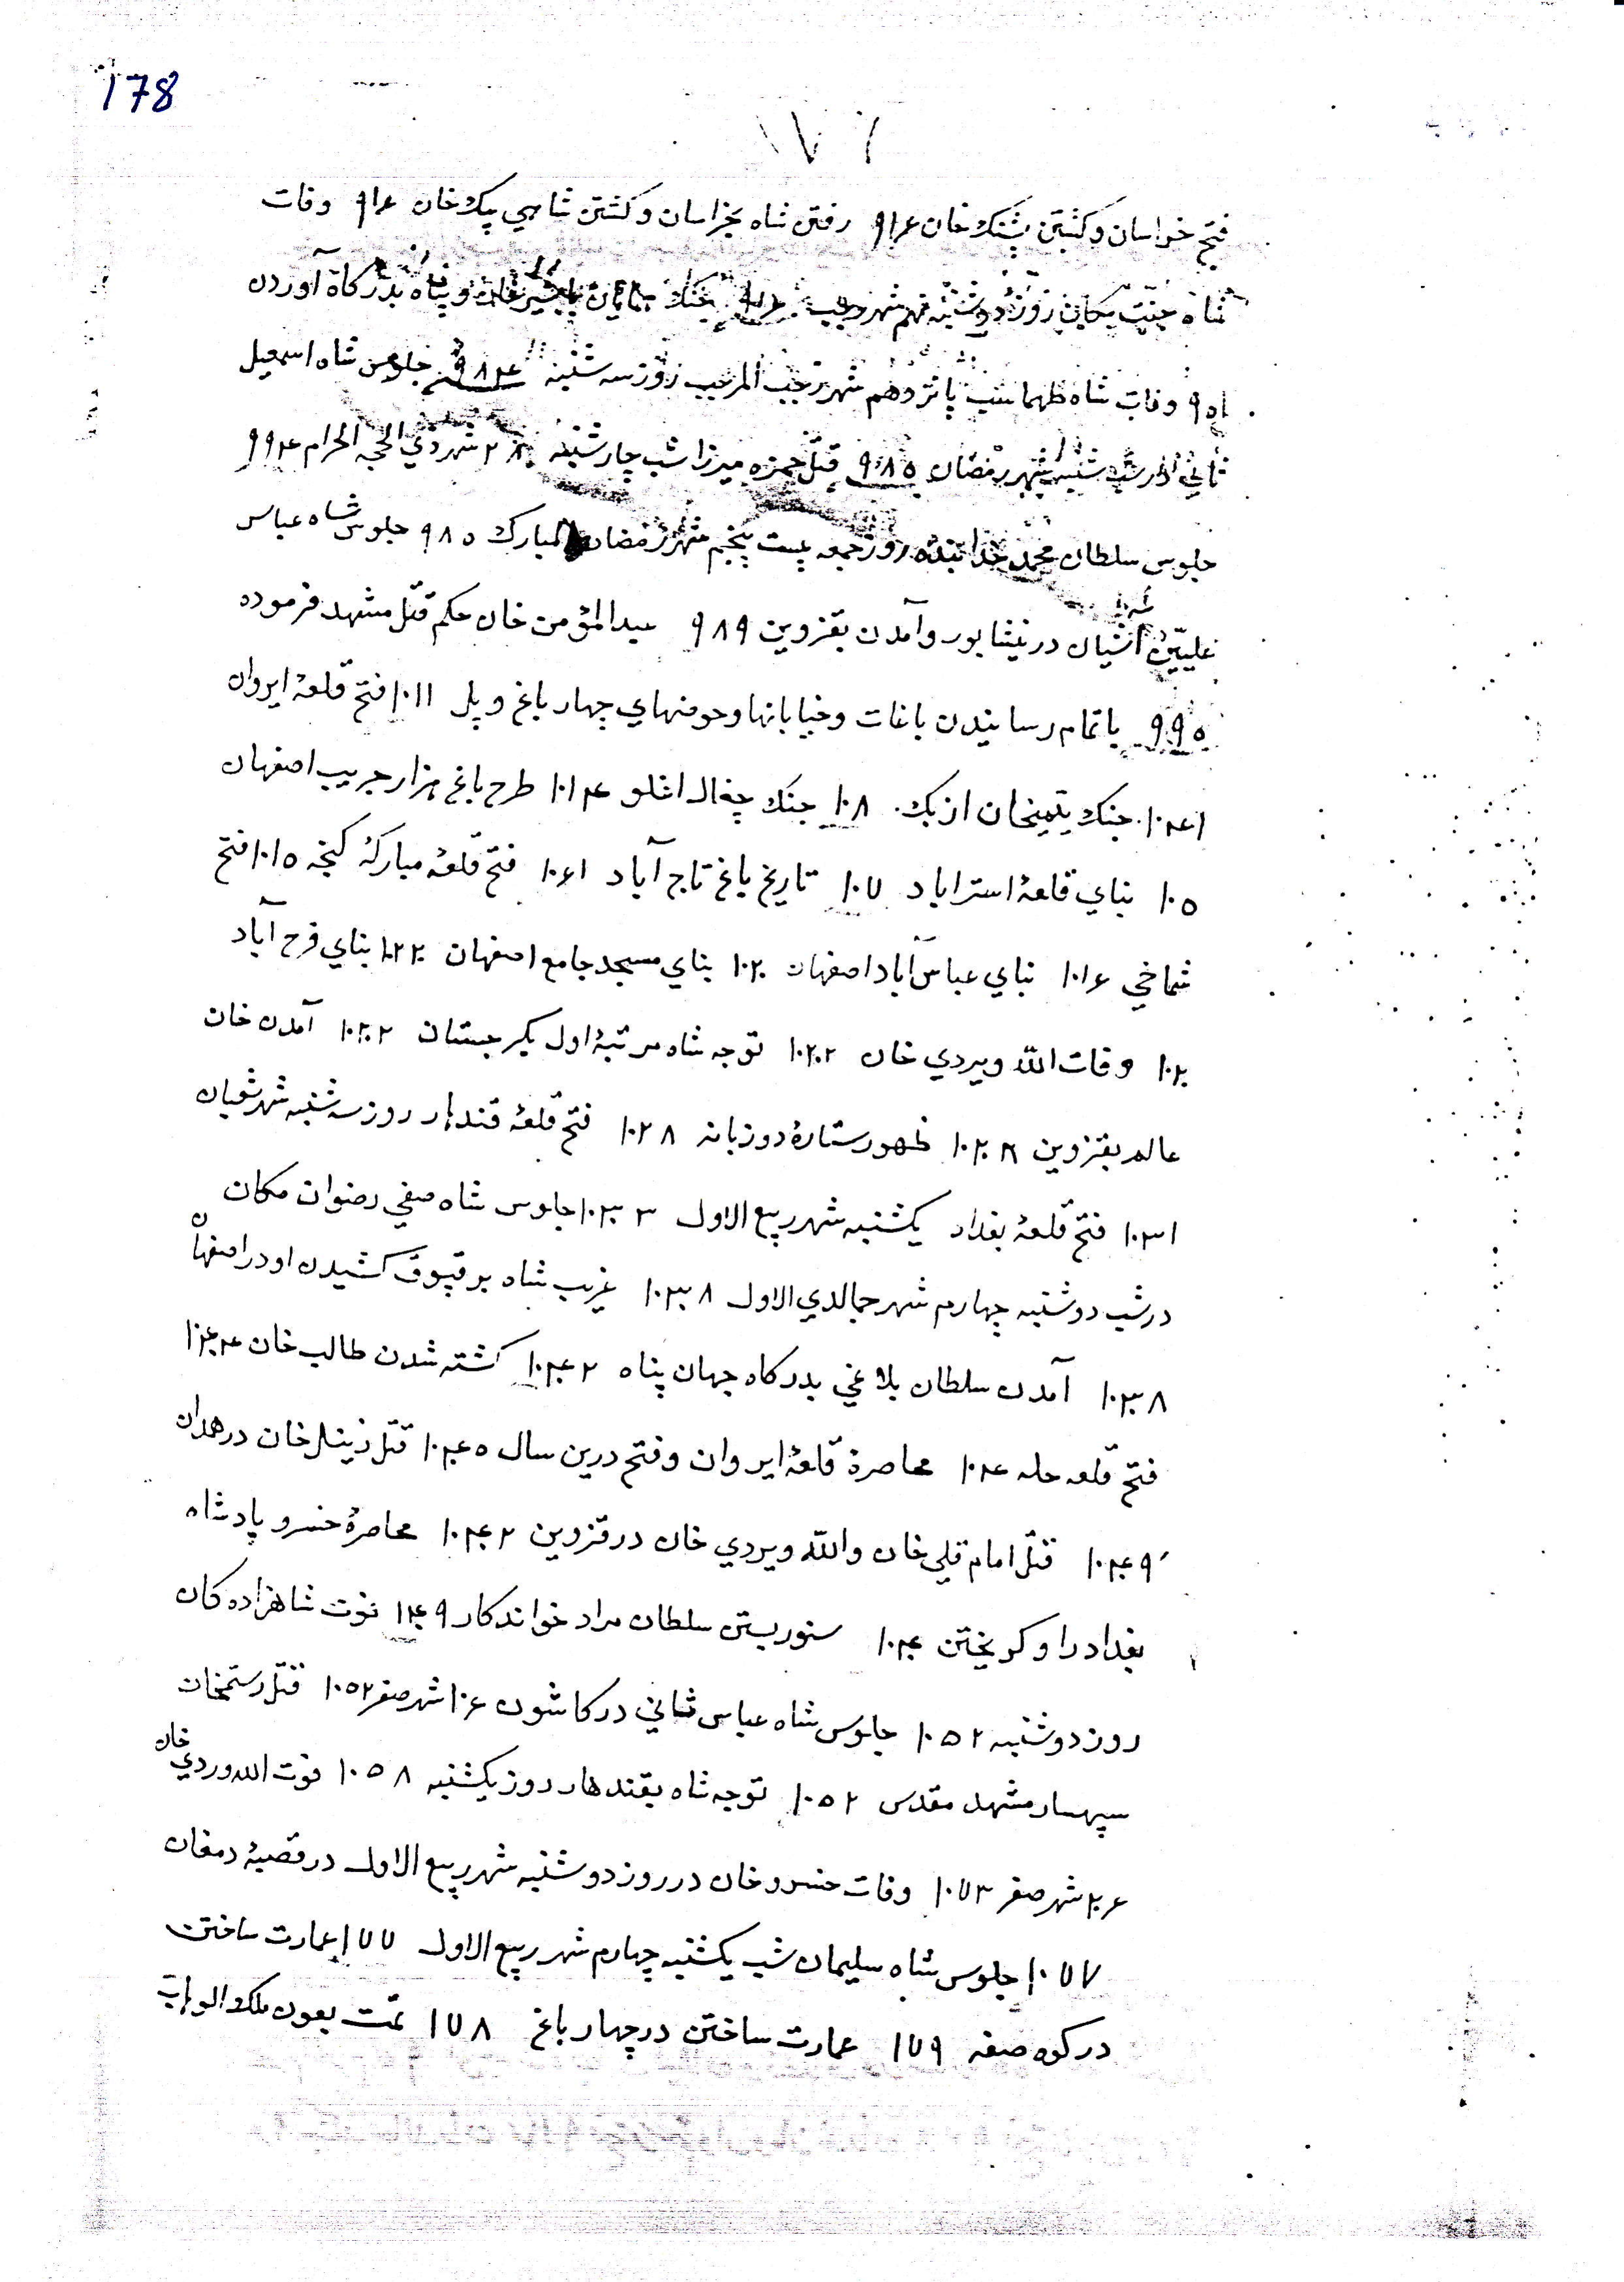 178
١٧٦
فتح خراسان و کشتن پشنک خان ٩١۶ رفتن شاه بخراسان و کشتن شاهي بیک خان ٩١۶ وفات
شاه جنت مکان روز دوشنبه نهم شهر رجب جنک و پناه بدرکاة آوردن
٩٥١ وفات شاه طهماسب پانزدهم شهر رجب المرجب روز سه شنبه ٩٨۴ جلوس شاه اسمعیل
ثاني شهر رمضان ٩٨٥ قتل حمزه میرزا شب چارشنبه ٢٨ شهر ذي الحجه الحرام ٩٩۴
جلوس سلطان محمد خدابنده روز جمعه بیست پنجم شهر رمضان المبارك ٩٨٥ جلوس شاه عباس
علیین آشیان در نیشابور و آمدن بقزوین ٩٨٩ عبدالمؤمن خان حکم قتل مشهد فرموده
٩٩٥ باتمام رسانیدن باغات و خیابانها و حوضهاي چهار باغ و پل ١٠١١ فتح قلعهٔ ایروان
١٠۴١ جنك یتیمخان ازبك ١٠٨ جنك چغال اغلو ١٠١۴ طرح باغ هزار جریب اصفهان
١٠٥ بناي قلعهٔ استراباد ١٠٧ تاریخ باغ تاج آباد ١٠۶١ فتح قلعهٔ مبارکهٔ کنجه ١٠١٥ فتح
شماخي ١٠١۶ بناي عباس آباد اصفهان ١٠٢٠ بناي مسجد جامع اصفهان ١٠٢٢٠ بناي فرح آباد
١٠٢٠ وفات اللّه ویردي خان ١٠٢٠٢ توجه شاه مرتبهٔ اول بکرجستان ١٠٢٠٢ آمدن خان
عالم بقزوین ظهور ستارهٔ دوزبانه ١٠٢٨ فتح قلعهٔ قندهار روز سه شنبه شهر شعبان
١٠٣١ فتح قلعهٔ بغداد یکشنبه شهر ربیع الاول ١٠٣٠٣ جلوس شاه صفي رضوان مکان
در شب دوشنبه چهارم شهر جمالدي الاول ١٠٣٠٨ غریب شاه بر قپوق کشیدن او در اصفهان
١٠٣٠٨ آمدن سلطان بلاغي بدرکاه جهان پناه ١٠۴٠٢ کشته شدن طالب خان ١٠۴٠۴
فتح قلعه حله ١٠۴ محاصرهٔ قلعهٔ ایروان و فتح درین سال ١٠۴٠٥ قتل زینل خان در همدان
١٠۴٠٩ قتل امام قلي خان و اللّه ویردي خان در قزوین ١٠۴٠٢ محاصرهٔ خسرو پادشاه
بغداد را و کریختن ١٠۴٠ سنور بستن سلطان مراد خواندکار ١۴٠٩ فوت شاهزاده کان
روز دوشنبه ١٠٥٢ جلوس شاه عباس ثاني در کاشون ١٠۶ شهر صفر ١٠٥٢ قتل رستمخان
سپهسار مشهد مقدس ١٠٥٢ توجه شاه بقندهار روز یکشنبه ١٠٥٨ فوت الله وردي خان
٢٠۶ شهر صفر ١٠٧٣ وفات خسرو خان در روز دوشنبه شهر ربیع الاول در قصبهٔ دمغان
١٠٧٧ جلوس شاه سلیمان شب یکشنبه چهارم شهر ربیع الاول ١٧٧ عمارت ساختن
در کوه صفه ١٧٩ عمارت ساختن در چهار باغ ١٧٨ تمّت بعون ملك الوهاب